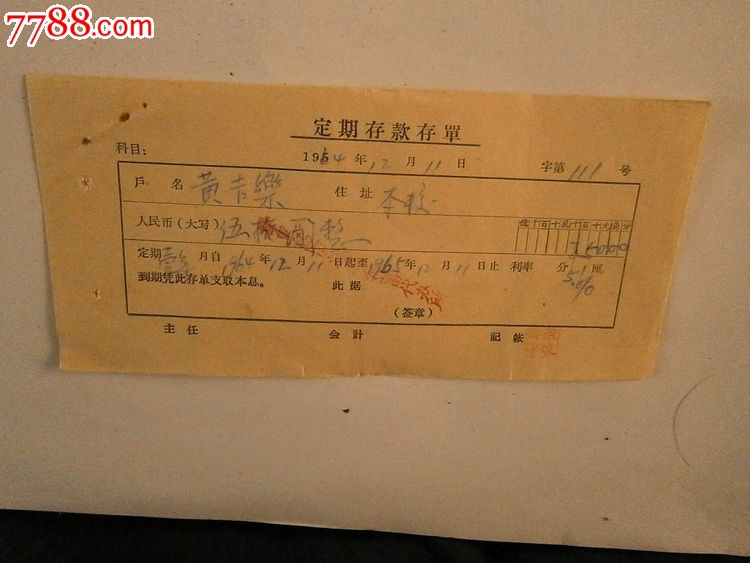 7788.com
定期存款存單
科目：
1964年12月11日
字第111号
戶名 黃吉樂 住址 本校
人民币（大写）伍拾
佰十百十萬千百十元角分
5000
定期 月自1964年12月11日起至1965年12月11日止 利率 分 厘
5.1%
到期凭此存单支取本息。 此据
（签章）
主任 会計 記帐